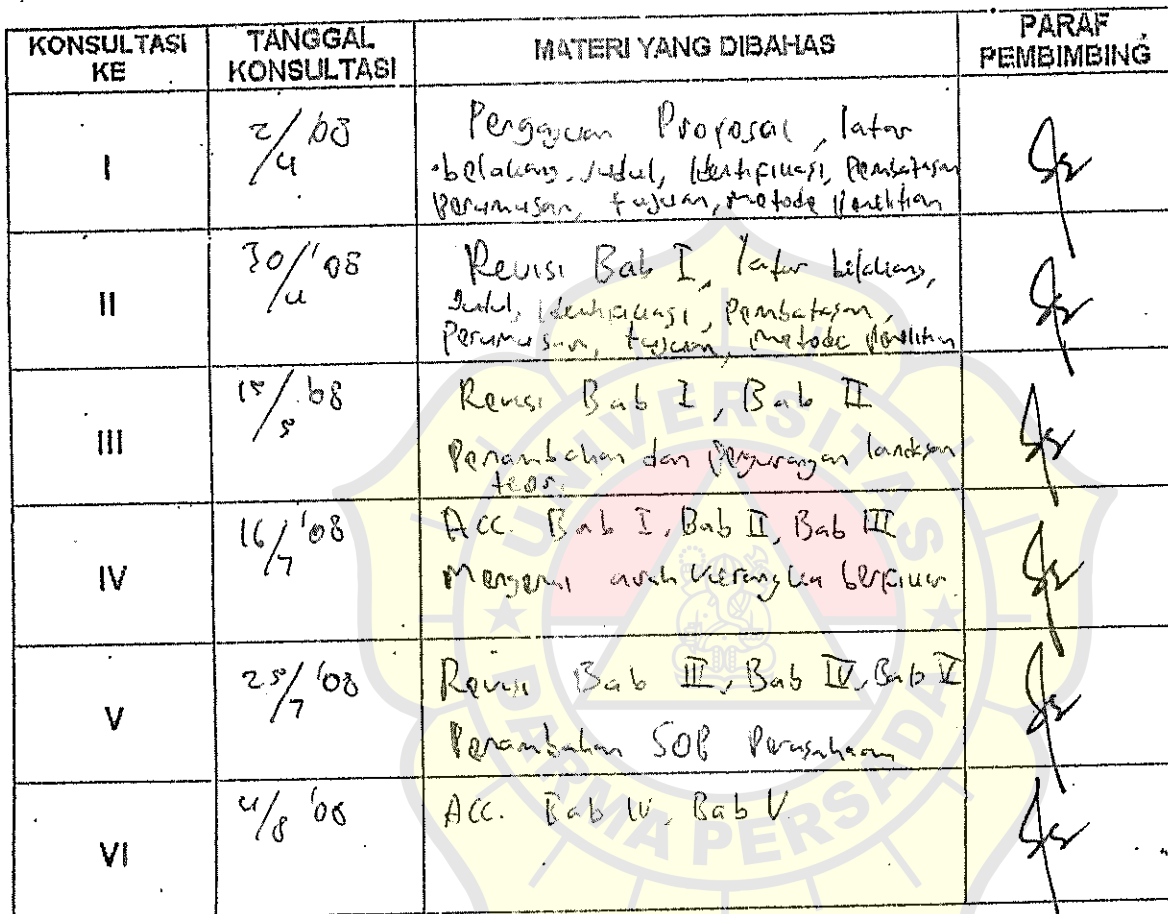 KONSULTASI KE
TANGGAL KONSULTASI
MATERI YANG DIBAHAS
PARAF PEMBIMBING
I
2/4 '08
Pengajuan Proposal, latar
belakang, Judul, Identifikasi, Pembatasan
Perumusan, tujuan, metode Penelitian
II
30/4 '08
Revisi Bab I, latar belakang,
Judul, Identifikasi, Pembatasan,
Perumusan, tujuan, metode Penelitian
III
15/5 '08
Revisi Bab I, Bab II
Penambahan dan pengurangan landasan
teori
IV
16/7 '08
Acc. Bab I, Bab II, Bab III
Mengenai arah kerangka berfikir
V
25/7 '08
Revisi Bab III, Bab IV, Bab V
Penambahan SOP Perusahaan
VI
4/8 '08
Acc. Bab IV, Bab V
UNIVERSITAS
DARMA PERSADA